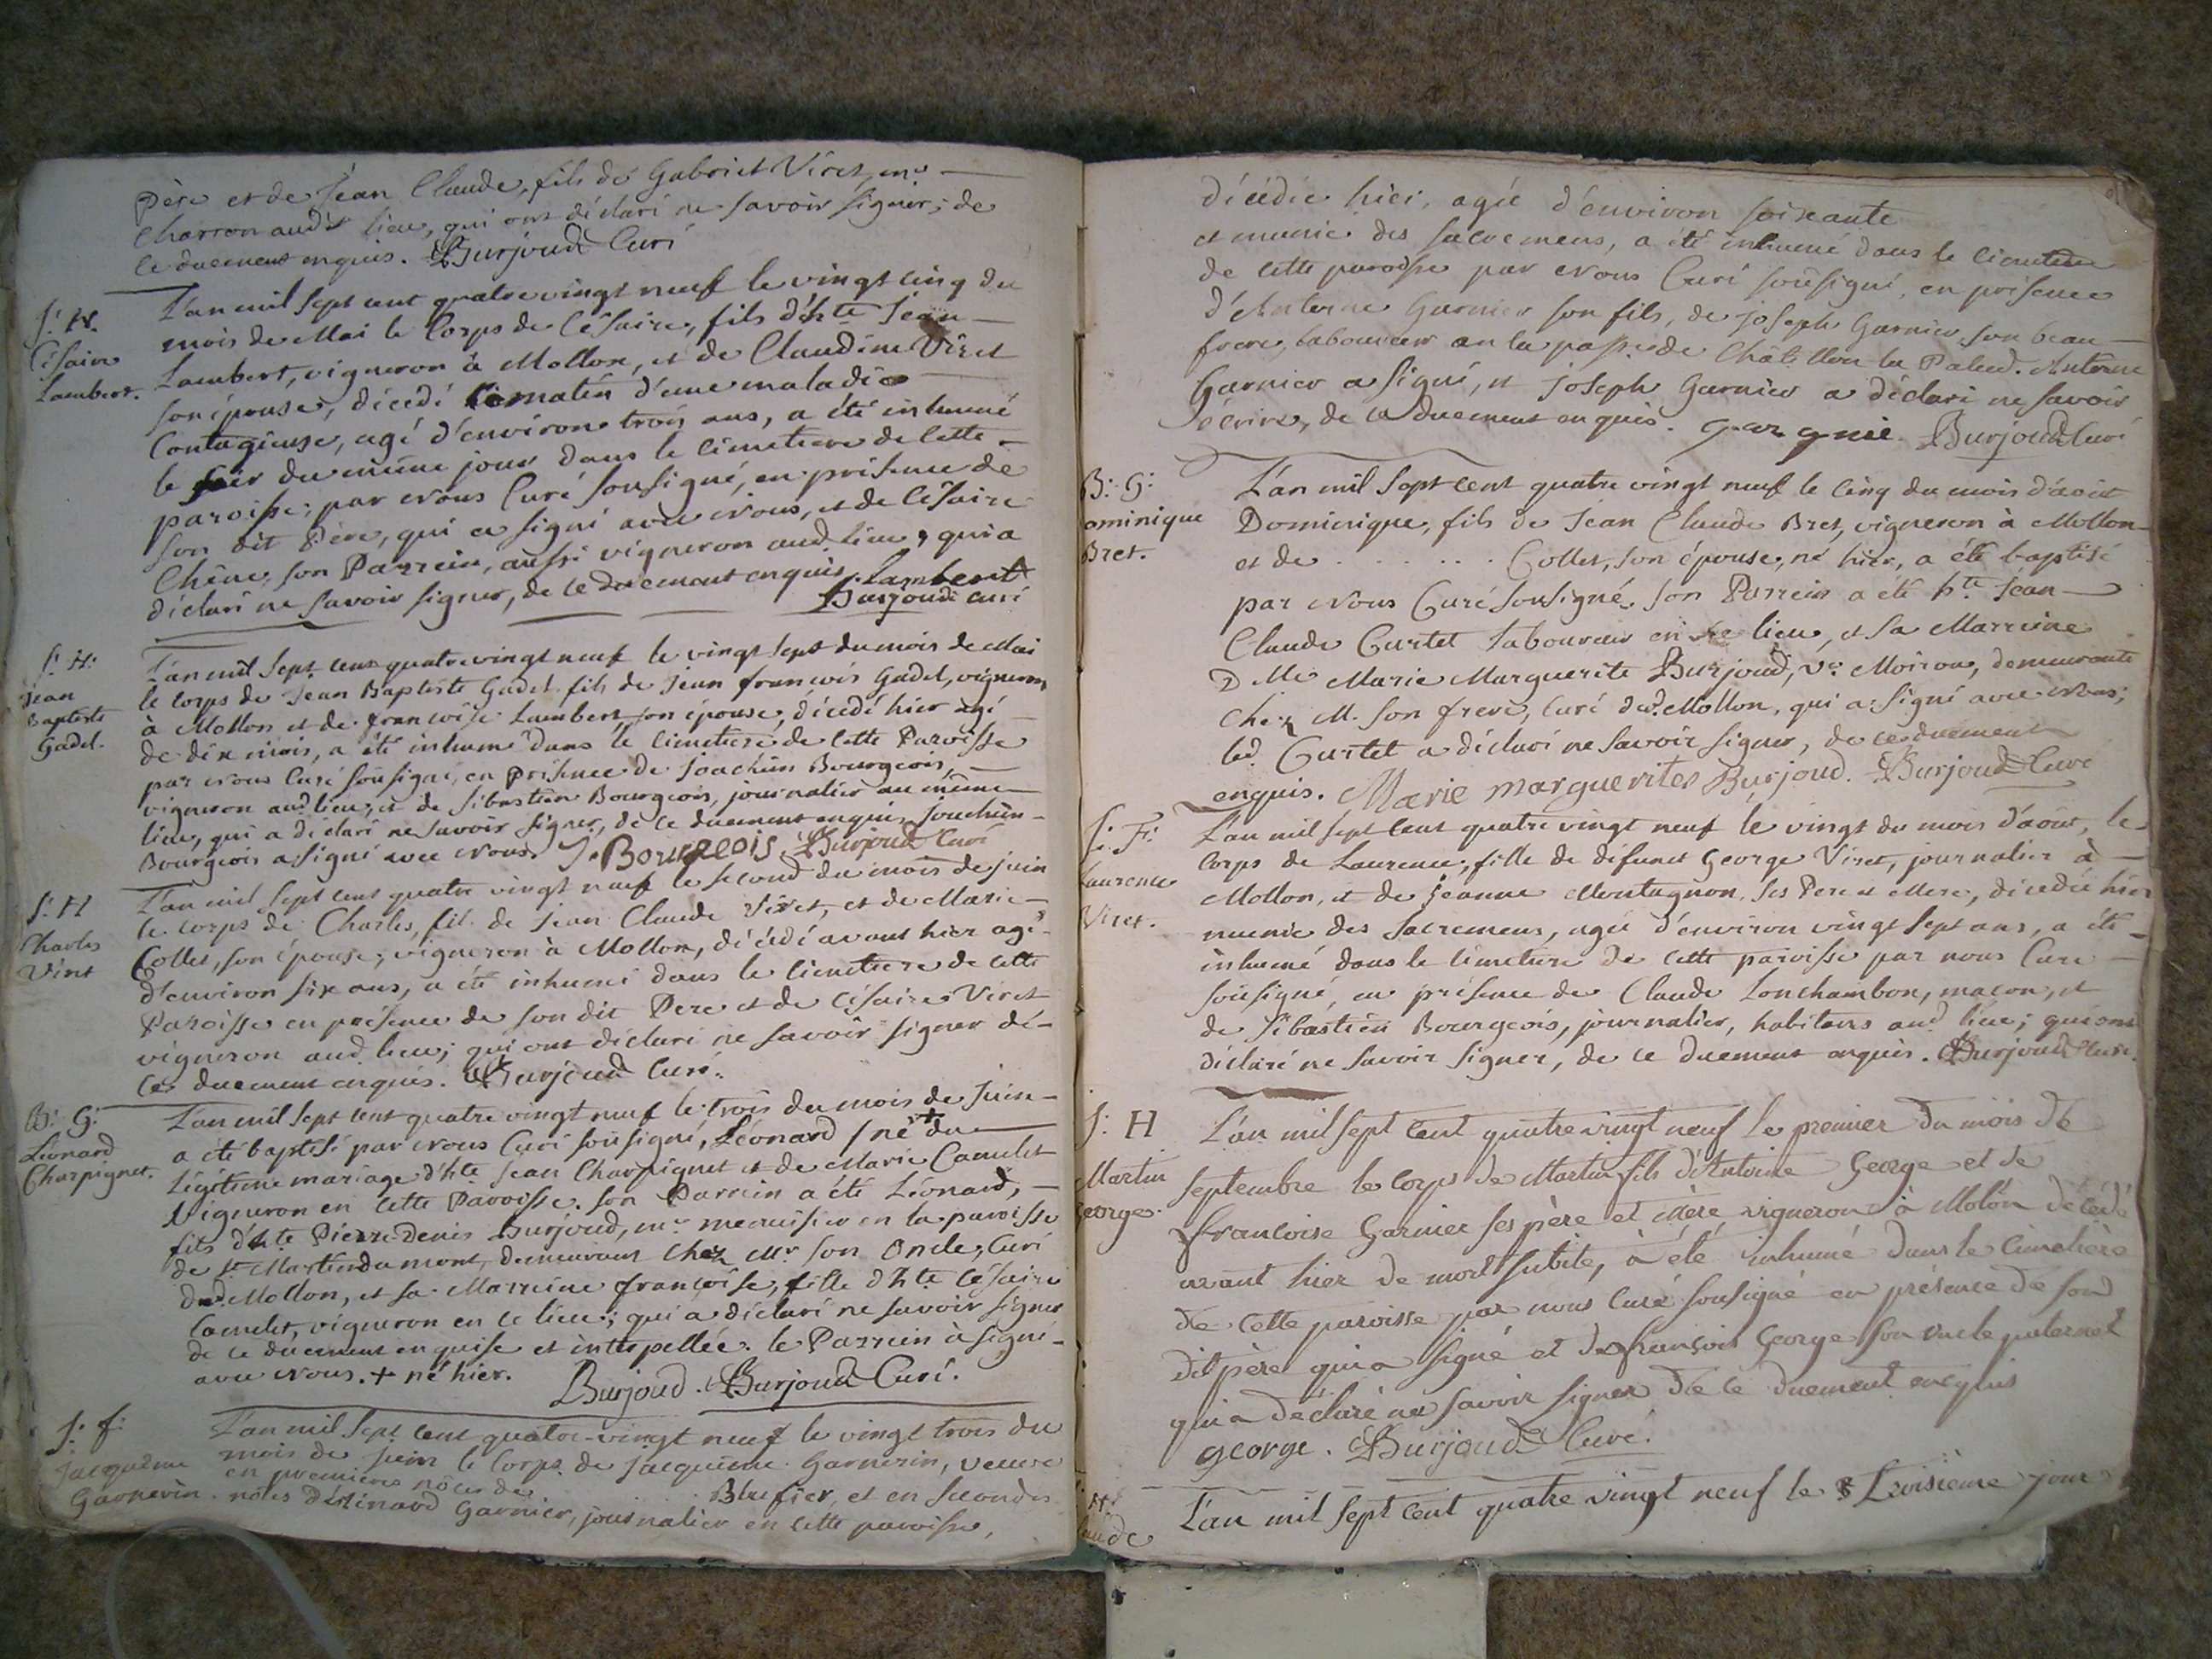 Père et de Jean Claude, fils de Gabriel Viret, me
charron audt lieu, qui ont déclaré ne savoir signer, de
ce duement enquis. Burjoud Curé
S: H.
Césaire
Lambert.
L'an mil sept cent quatre vingt neuf le vingt cinq du
mois de Mai le Corps de Césaire, fils d'hte Jean
Lambert, vigneron à Mollon, et de Claudine Viret
son épouse, décédé ce matin d'une maladie
Contagieuse, agé d'environ trois ans, a été inhumé
le soir du même jour dans le Cimetiere de Cette
paroisse, par Nous Curé sousigné, en présence de
son dit Père, qui a signé avec Nous, et de Césaire
Chêne, son Parrein, aussi vigneron aud. lieu, qui a
déclaré ne savoir signer, de ce duement enquis. J. Lambert
Burjoud curé
S: H:
Jean
Baptiste
Gadel.
L'an mil sept cent quatre vingt neuf le vingt sept du mois de Mai
le corps de Jean Baptiste Gadel fils de Jean françois Gadel, vigneron
à Mollon et de françoise Lambert, son épouse, décédé hier agé
de dix mois, a été inhumé dans le cimetiere de cette Paroisse
par nous Curé sousigné, en présence de Joachim Bourgeois,
vigneron aud. lieu, et de Sébastien Bourgeois, journalier au même
lieu, qui a déclaré ne savoir signer, de ce duement enquis, Joachim
Bourgeois a signé avec Nous. J. Bourgeois. Burjoud Curé
S: H
Charles
Viret
L'an mil sept cent quatre vingt neuf le second du mois de juin
le corps de Charles, fils de Jean Claude Viret, et de Marie
Collet, son épouse, vigneron à Mollon, décédé avant hier agé
d'environ six ans, a été inhumé dans le cimetiere de cette
Paroisse en présence de son dit Pere et de Césaire Viret
vigneron aud. lieu; qui ont déclaré ne savoir signer de
ce duement enquis. Burjoud Curé.
B: G:
Léonard
Charpignet.
L'an mil sept cent quatre vingt neuf le trois du mois de Juin
a été baptisé par Nous Curé sousigné, Léonard né + du
légitime mariage d'hte Jean Charpignet et de Marie Camelet
Vigneron en cette Paroisse. son Parrein a été Léonard,
fils d'hte Pierre-denis Burjoud, me menuisier en la paroisse
de St Martin du mont, demeurant chez Mr son Oncle, Curé
dud. Mollon, et sa Marreine françoise, fille d'hte Césaire
Camelet, vigneron en ce lieu; qui a déclaré ne savoir signer
de ce duement enquise et interpellée. le Parrein à signé
avec Nous. + né hier. Burjoud. Burjoud Curé.
S: f:
Jacquême
Garnerin.
L'an mil sept cent quatre-vingt neuf le vingt trois du
mois de juin le Corps de Jacquême Garnerin, veuve
en premieres nôces de Blufier, et en secondes
nôces Garnier, journalier en cette paroisse,
décédée hier, agée d'environ soixante
et munie des sacremens, a été inhumé dans le cimetiere
de cette paroisse par Nous Curé sousigné, en présence
d'Antoine Garnier son fils, de joseph Garnier son beau
frere, laboureur en la passe de Châtillon la Palud. Antoine
Garnier a signé, et joseph Garnier a déclaré ne savoir
ecrire, de ce duement enquis. gargnie. Burjoud Curé
B: G:
ominique
Bret.
L'an mil sept cent quatre vingt neuf le cinq du mois d'aout
Dominique, fils de Jean Claude Bret, vigneron à Mollon
et de . . . . . . Collet, son épouse, né hier, a été baptisé
par Nous Curé sousigné. son Parrein a été hte Jean
Claude Curtet laboureur en ce lieu, et sa Marreine
D Mle Marie Marguerite Burjoud, ve Moiroux, demeurante
chez M. son frere, Curé dud. Mollon, qui a signé avec Nous;
led. Curtet a déclaré ne savoir signer, de ce duement
enquis. Marie marguerites Burjoud. Burjoud Curé
S: F:
Laurence
Viret.
L'an mil sept cent quatre vingt neuf le vingt du mois d'août, le
corps de Laurence, fille de defunct George Viret, journalier à
Mollon, et de jeanne Montagnon, ses Pere et Mere, décédée hier
munie des sacremens, agée d'environ vingt sept ans, a été
inhumé dans le cimetiere de cette paroisse par nous Curé
sousigné, en présence de Claude Lonchambon, maçon, et
de Sébastien Bourgeois, journalier, habitans aud. lieu; qui ont
déclaré ne savoir signer, de ce duement enquis. Burjoud Curé.
S: H
Martin
George.
L'an mil sept cent quatre vingt neuf le premier du mois de
septembre le corps de Martin fils d'Antoine George et de
françoise Garnier ses père et mère vigneron à Molon décédé
avant hier de mort subite, à été inhumé dans le cimetière
de cette paroisse par nous curé sousigné en présence de son
dit père qui a signé et de françois George son oncle paternel
qui a déclaré ne savoir signer de ce duement enquis
george. Burjoud Curé.
H
aude
L'an mil sept cent quatre vingt neuf le troisième jour